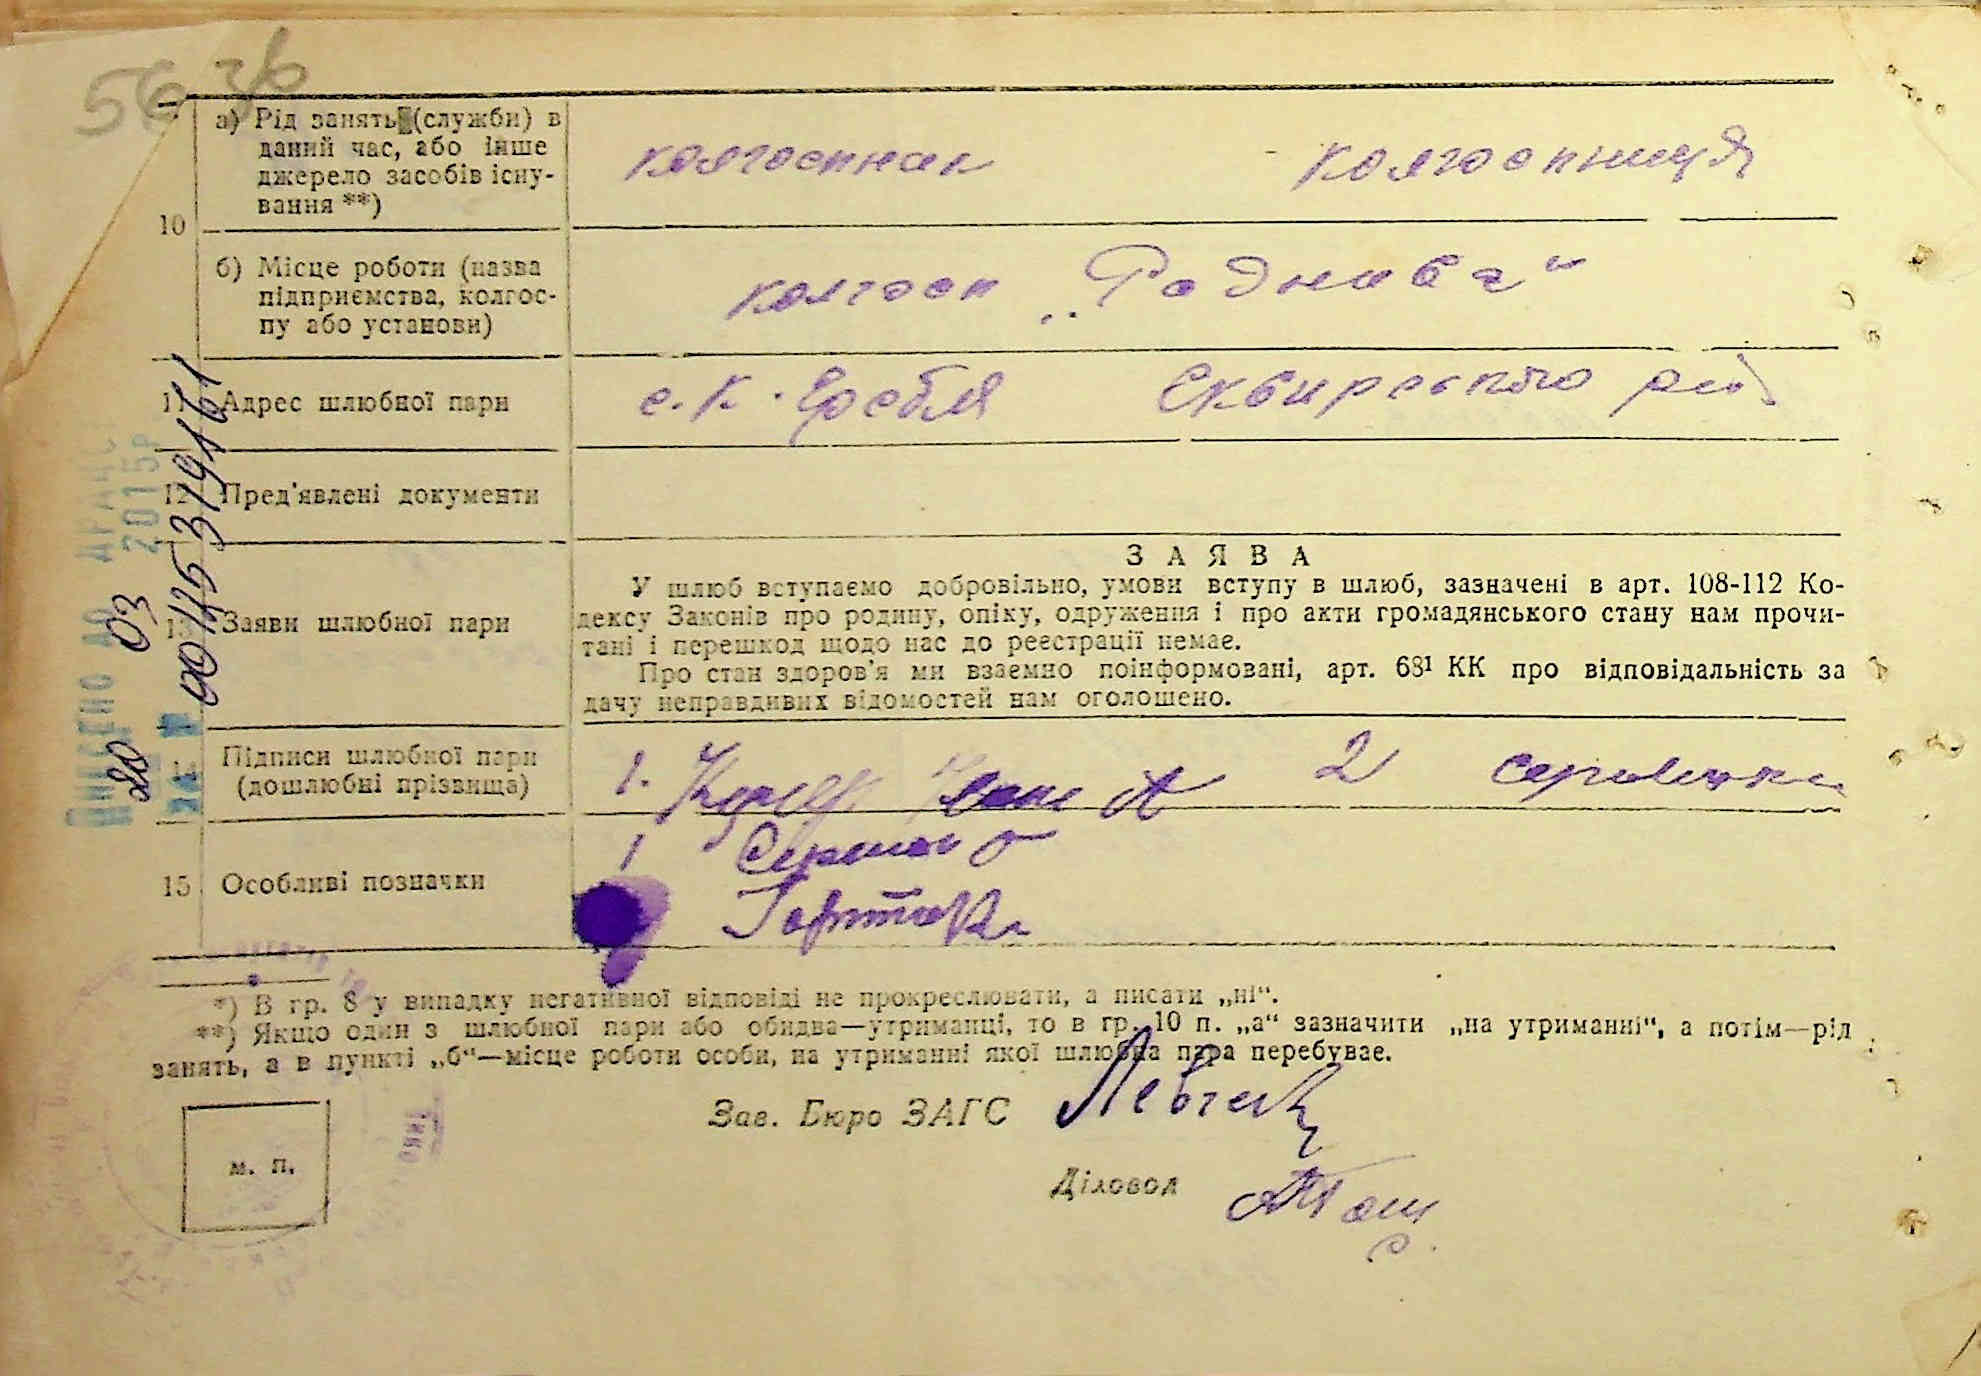 56 зб
а) Рід занять (служби) в
даний час, або інше
джерело засобів існу-
вання **)
колгоспник колгоспниця
10
б) Місце роботи (назва
підприємства, колгос-
пу або установи)
колгосп „Роднива“
11 Адрес шлюбної пари
с. К. Гребля Сквирського рай
12 Пред'явлені документи
13 Заяви шлюбної пари
ЗАЯВА
У шлюб вступаємо добровільно, умови вступу в шлюб, зазначені в арт. 108-112 Ко-
дексу Законів про родину, опіку, одруження і про акти громадянського стану нам прочи-
тані і перешкод щодо нас до реєстрації немає.
Про стан здоров'я ми взаємно поінформовані, арт. 68¹ КК про відповідальність за
дачу неправдивих відомостей нам оголошено.
14 Підписи шлюбної пари
(дошлюбні прізвища)
1. 2
15 Особливі позначки
1
*) В гр. 8 у випадку негативної відповіді не прокреслювати, а писати „ні“.
**) Якщо один з шлюбної пари або обидва—утриманці, то в гр. 10 п. „а“ зазначити „на утриманні“, а потім—рід
занять, а в пункті „б“—місце роботи особи, на утриманні якої шлюбна пара перебуває.
Зав. Бюро ЗАГС
м. п.
Діловод
ВНЕСЕНО ДО ДРАЦС
20 03 2015р
00115 379161